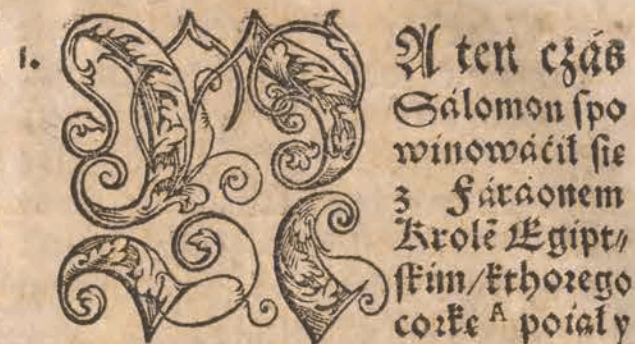 1. NA ten czás
Sálomon ſpo
winowáćił ſie
z Fáráonem
Krolē Egipt⸗
ſkim/kthorego
corkę A poiął y